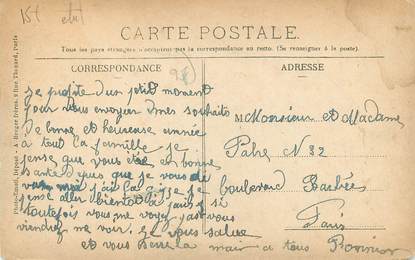 CARTE POSTALE
Tous les pays étrangers n'acceptent pas la correspondance au recto. (Se renseigner à la poste).
CORRESPONDANCE
ADRESSE
je profite d'un ptit moment
pour vous envoyer mes souhaits
de bonne et heureuse année
a tout la famille je
pense que vous ete en bonne
que je vous di
pense aller bientot a paris si
toutefois vous me voyez pas vous
viendrez me voir. je vous salue
et vous serre la main a tous
Monsieur et Madame
N 32
boulevard Barbès
Paris